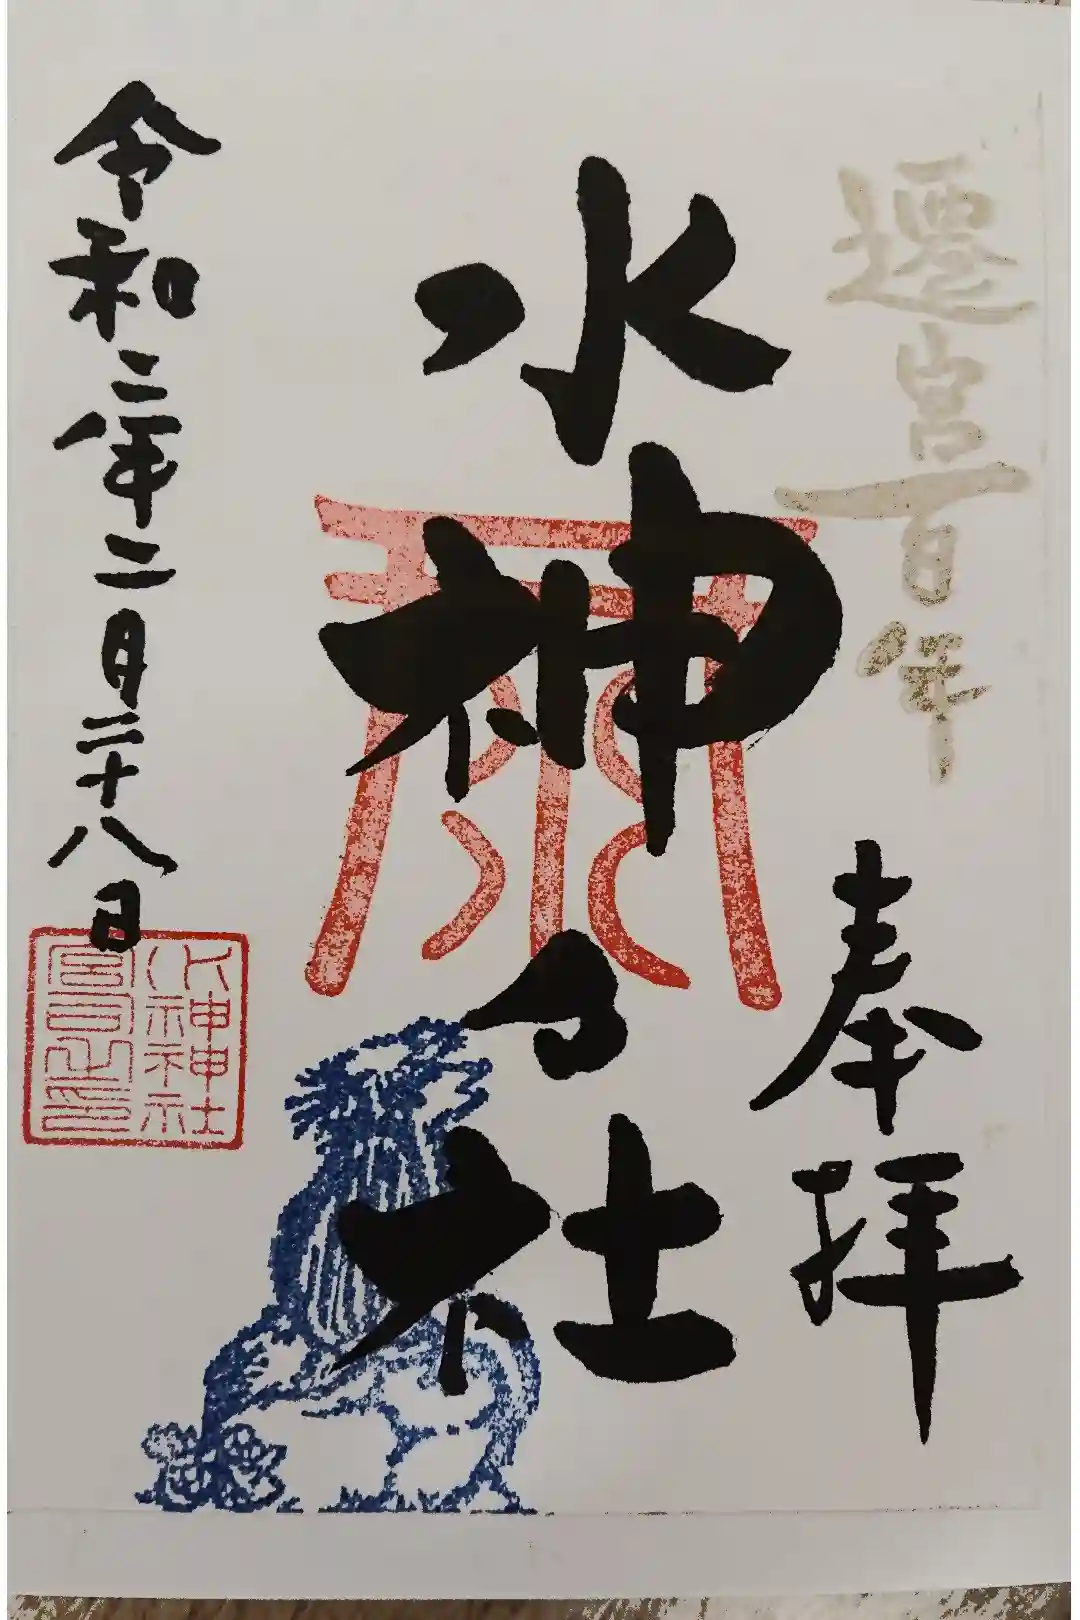 遷宮百年
奉拝
水神々社
令和二年二月二十八日
水神神社
宮司之印